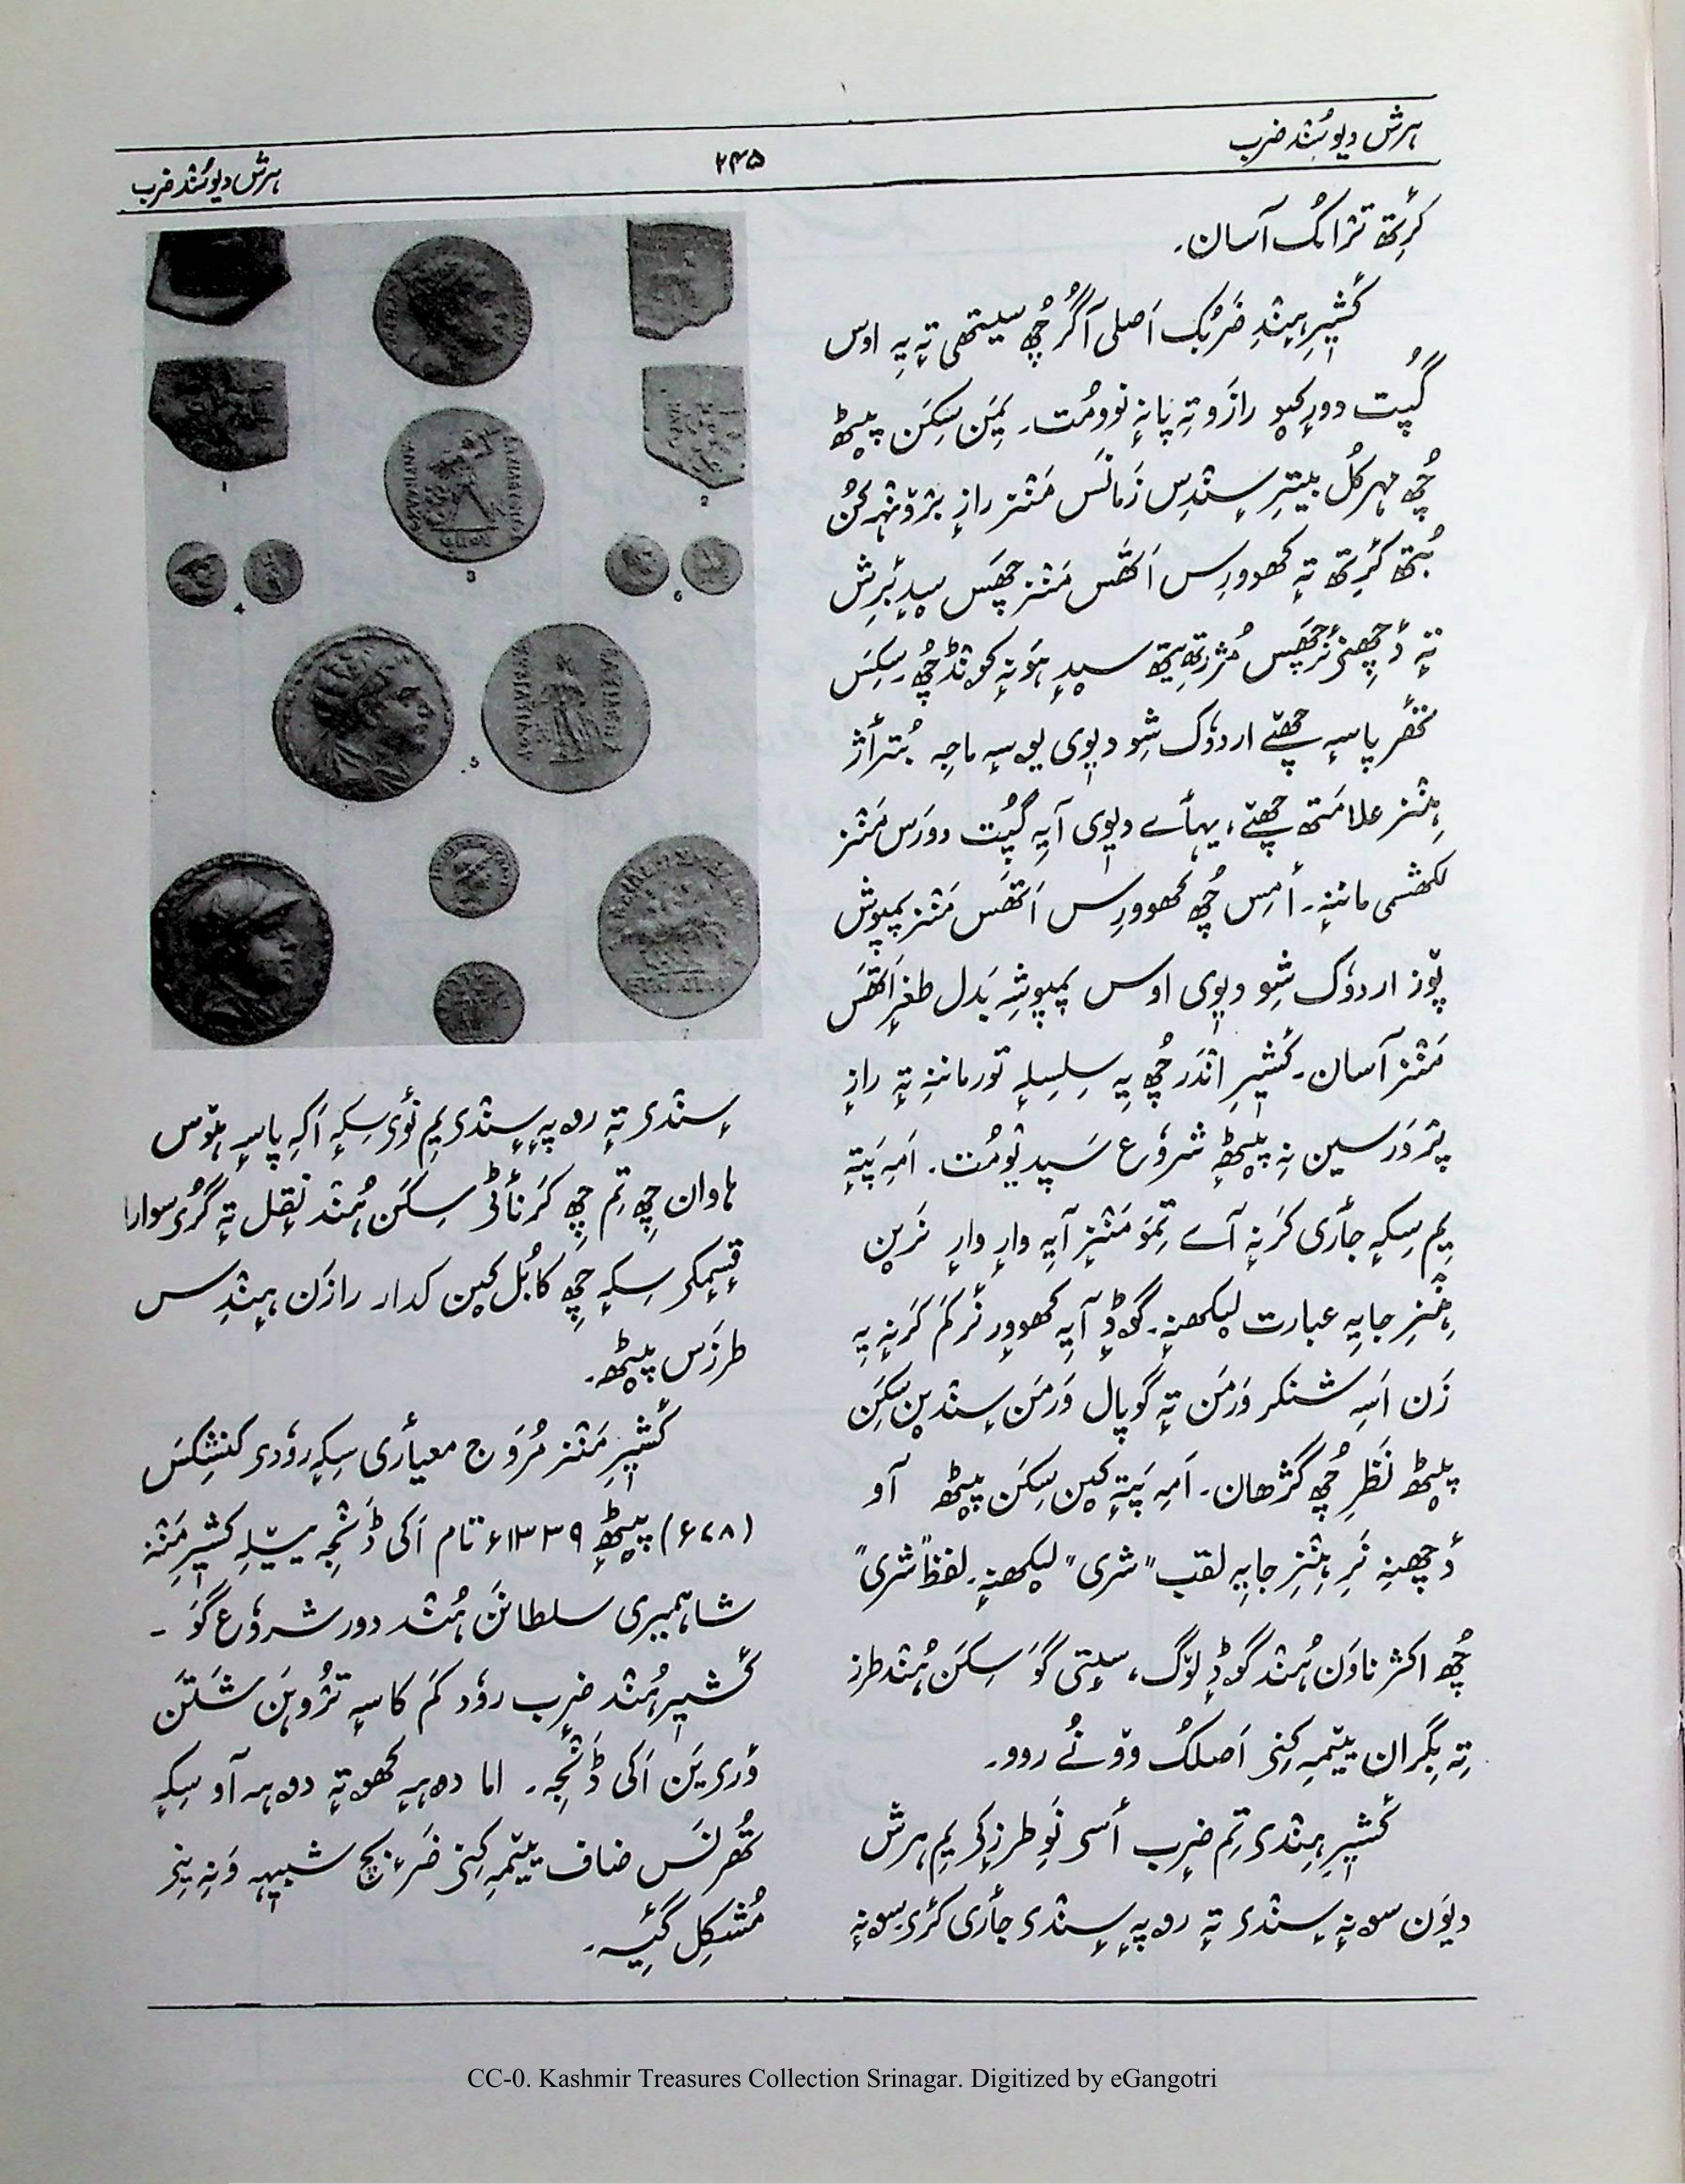 ہرش دیوُہنٛد ضرب
۲۴۵
ہرش دیوُہنٛد ضرب
کٔرِتھ تراکُ آسان۔
کٔشیٖرِ ہٕنٛدِ ضَربُک اَصلی اگرچُھ سیتھی تہٕ یہِ اوس
گُپت دورٕکیو رازَو تہٕ پانہٕ نوومُت۔ یِمَن سِکَن پیٚٹھ
چُھ مہرکُل بیترِ سٕنٛدِس زَمانَس مَنٛز رازٕ برٛونٛہہ کُن
بُتھ کٔرِتھ تہٕ کھوورِس اَتھَس مَنٛز چھَس
تہٕ دٔچھِنۍ
پاسہٕ چھےٚ اردوٗک شِو دیوی یوسہٕ ماجہِ بُترأژ
ہٕنٛز علامَتھ چھےٚ، یہأے دیوی آیہِ گُپت دورَس مَنٛز
لکھشمی ماننہٕ۔ أمِس چُھ کھوورِس اَتھَس مَنٛز پمپوش
پوٚز اردوٗک شِو دیوی اوس پمپوشہِ بَدل طغرٕ اَتھَس
مَنٛز آسان۔ کٔشیٖرِ اندَر چُھ یہِ سِلسِلہٕ تورماننہِ تہٕ رازٕ
پرٛوَرسین نہِ پیٚٹھہٕ شروٗع سَپدیوٚمُت۔ اَمہِ پَتہٕ
یِم سِکہٕ جأری کَرنہٕ آے تِمَو مَنٛزٕ آیہِ وارٕ وارٕ نَرین
ہٕنٛزِ جایہِ عبارت لیکھنہٕ۔ گوڈٕ آیہِ کھووٕر نٔر کَم کَرنہٕ یہِ
زَن اَسہِ شنکر وَرمَن تہٕ گوپال وَرمَن سٕنٛدیٚن سِکَن
پیٚٹھ نَظرِ چُھ گژھان۔ اَمہِ پَتہٕ کیٚن سِکَن پیٚٹھ آو
دٔچھِنہِ نَرِ ہٕنٛزِ جایہِ لقب ”شری“ لیکھنہٕ۔ لفظ ”شری“
چُھ اکثر ناوَن ہُنٛد گوڈٕ لوٚگ، سیٖتی گَو سِکَن ہُنٛد طرز
تہٕ بِگران ییٚمہِ کِنۍ اَصلُک
کٔشیٖرِ ہٕنٛدی تِم ضرب أسی نَوِ طرزٕکی یِم ہرش
دیوَن سونہٕ سٕنٛدی تہٕ روپہٕ سٕنٛدی جأری کٔری۔ سونہٕ
سٕنٛدی تہٕ روپہٕ سٕنٛدی یِم نٔوی سِکہٕ اَکہِ پاسہٕ ہوٚس
ہاوان چِھ تِم چِھ کَرناٹی سِکَن ہُنٛد نَقل تہٕ گُرِ سوار
قِسمٕکی سِکہٕ چِھ کابُل کیٚن کدار رازَن ہٕنٛدِس
طرزَس پیٚٹھ۔
کٔشیٖرِ مَنٛز مُروَج معیأری سِکہٕ روٗدی کنشکَس
(۷۸ء) پیٚٹھہٕ ۱۳۳۹ء تام اَکی ڈَنٛجہِ ییٚلہِ کٔشیٖرِ مَنٛز
شاہمیری سلطانَن ہُنٛد دور شروٗع گوَ۔
کٔشیٖرِ ہُنٛد ضرب روٗد کَم کاسہٕ ترُٛوہَن شَتَن
ؤری یَن اَکی ڈَنٛجہِ۔ اما دوہہٕ کھوتہٕ دوہہ آو سِکہٕ
تُھرنَس ییٚمہِ کِنۍ شبیہہ وَنہِ
مُشکِل گٔیہِ۔
CC-0. Kashmir Treasures Collection Srinagar. Digitized by eGangotri